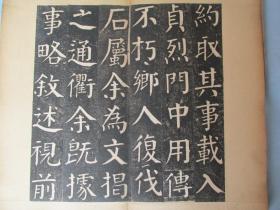 約取其事載入
貞烈門中用傳
不朽鄉人復伐
石屬余為文揭
之通衢余既據
事略敘述視前